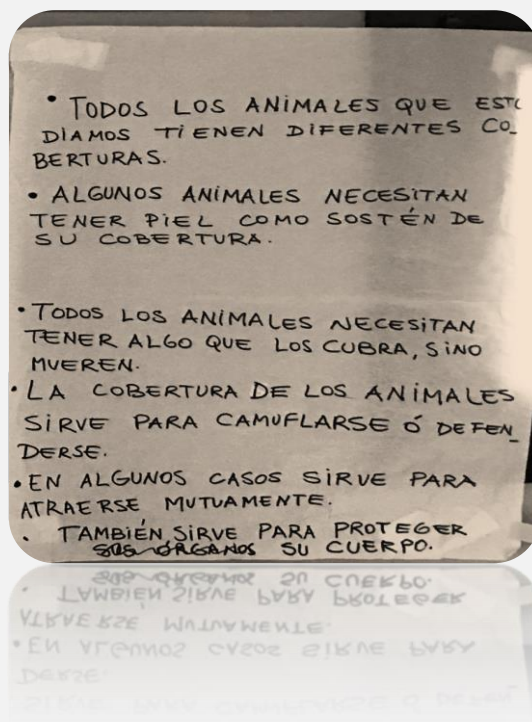 • TODOS LOS ANIMALES QUE ESTU
DIAMOS TIENEN DIFERENTES CO_
BERTURAS.
• ALGUNOS ANIMALES NECESITAN
TENER PIEL COMO SOSTÉN DE
SU COBERTURA.
• TODOS LOS ANIMALES NECESITAN
TENER ALGO QUE LOS CUBRA, SINO
MUEREN.
• LA COBERTURA DE LOS ANIMALES
SIRVE PARA CAMUFLARSE Ó DEFEN_
DERSE.
• EN ALGUNOS CASOS SIRVE PARA
ATRAERSE MUTUAMENTE.
• TAMBIÉN SIRVE PARA PROTEGER
SUS ÓRGANOS SU CUERPO.